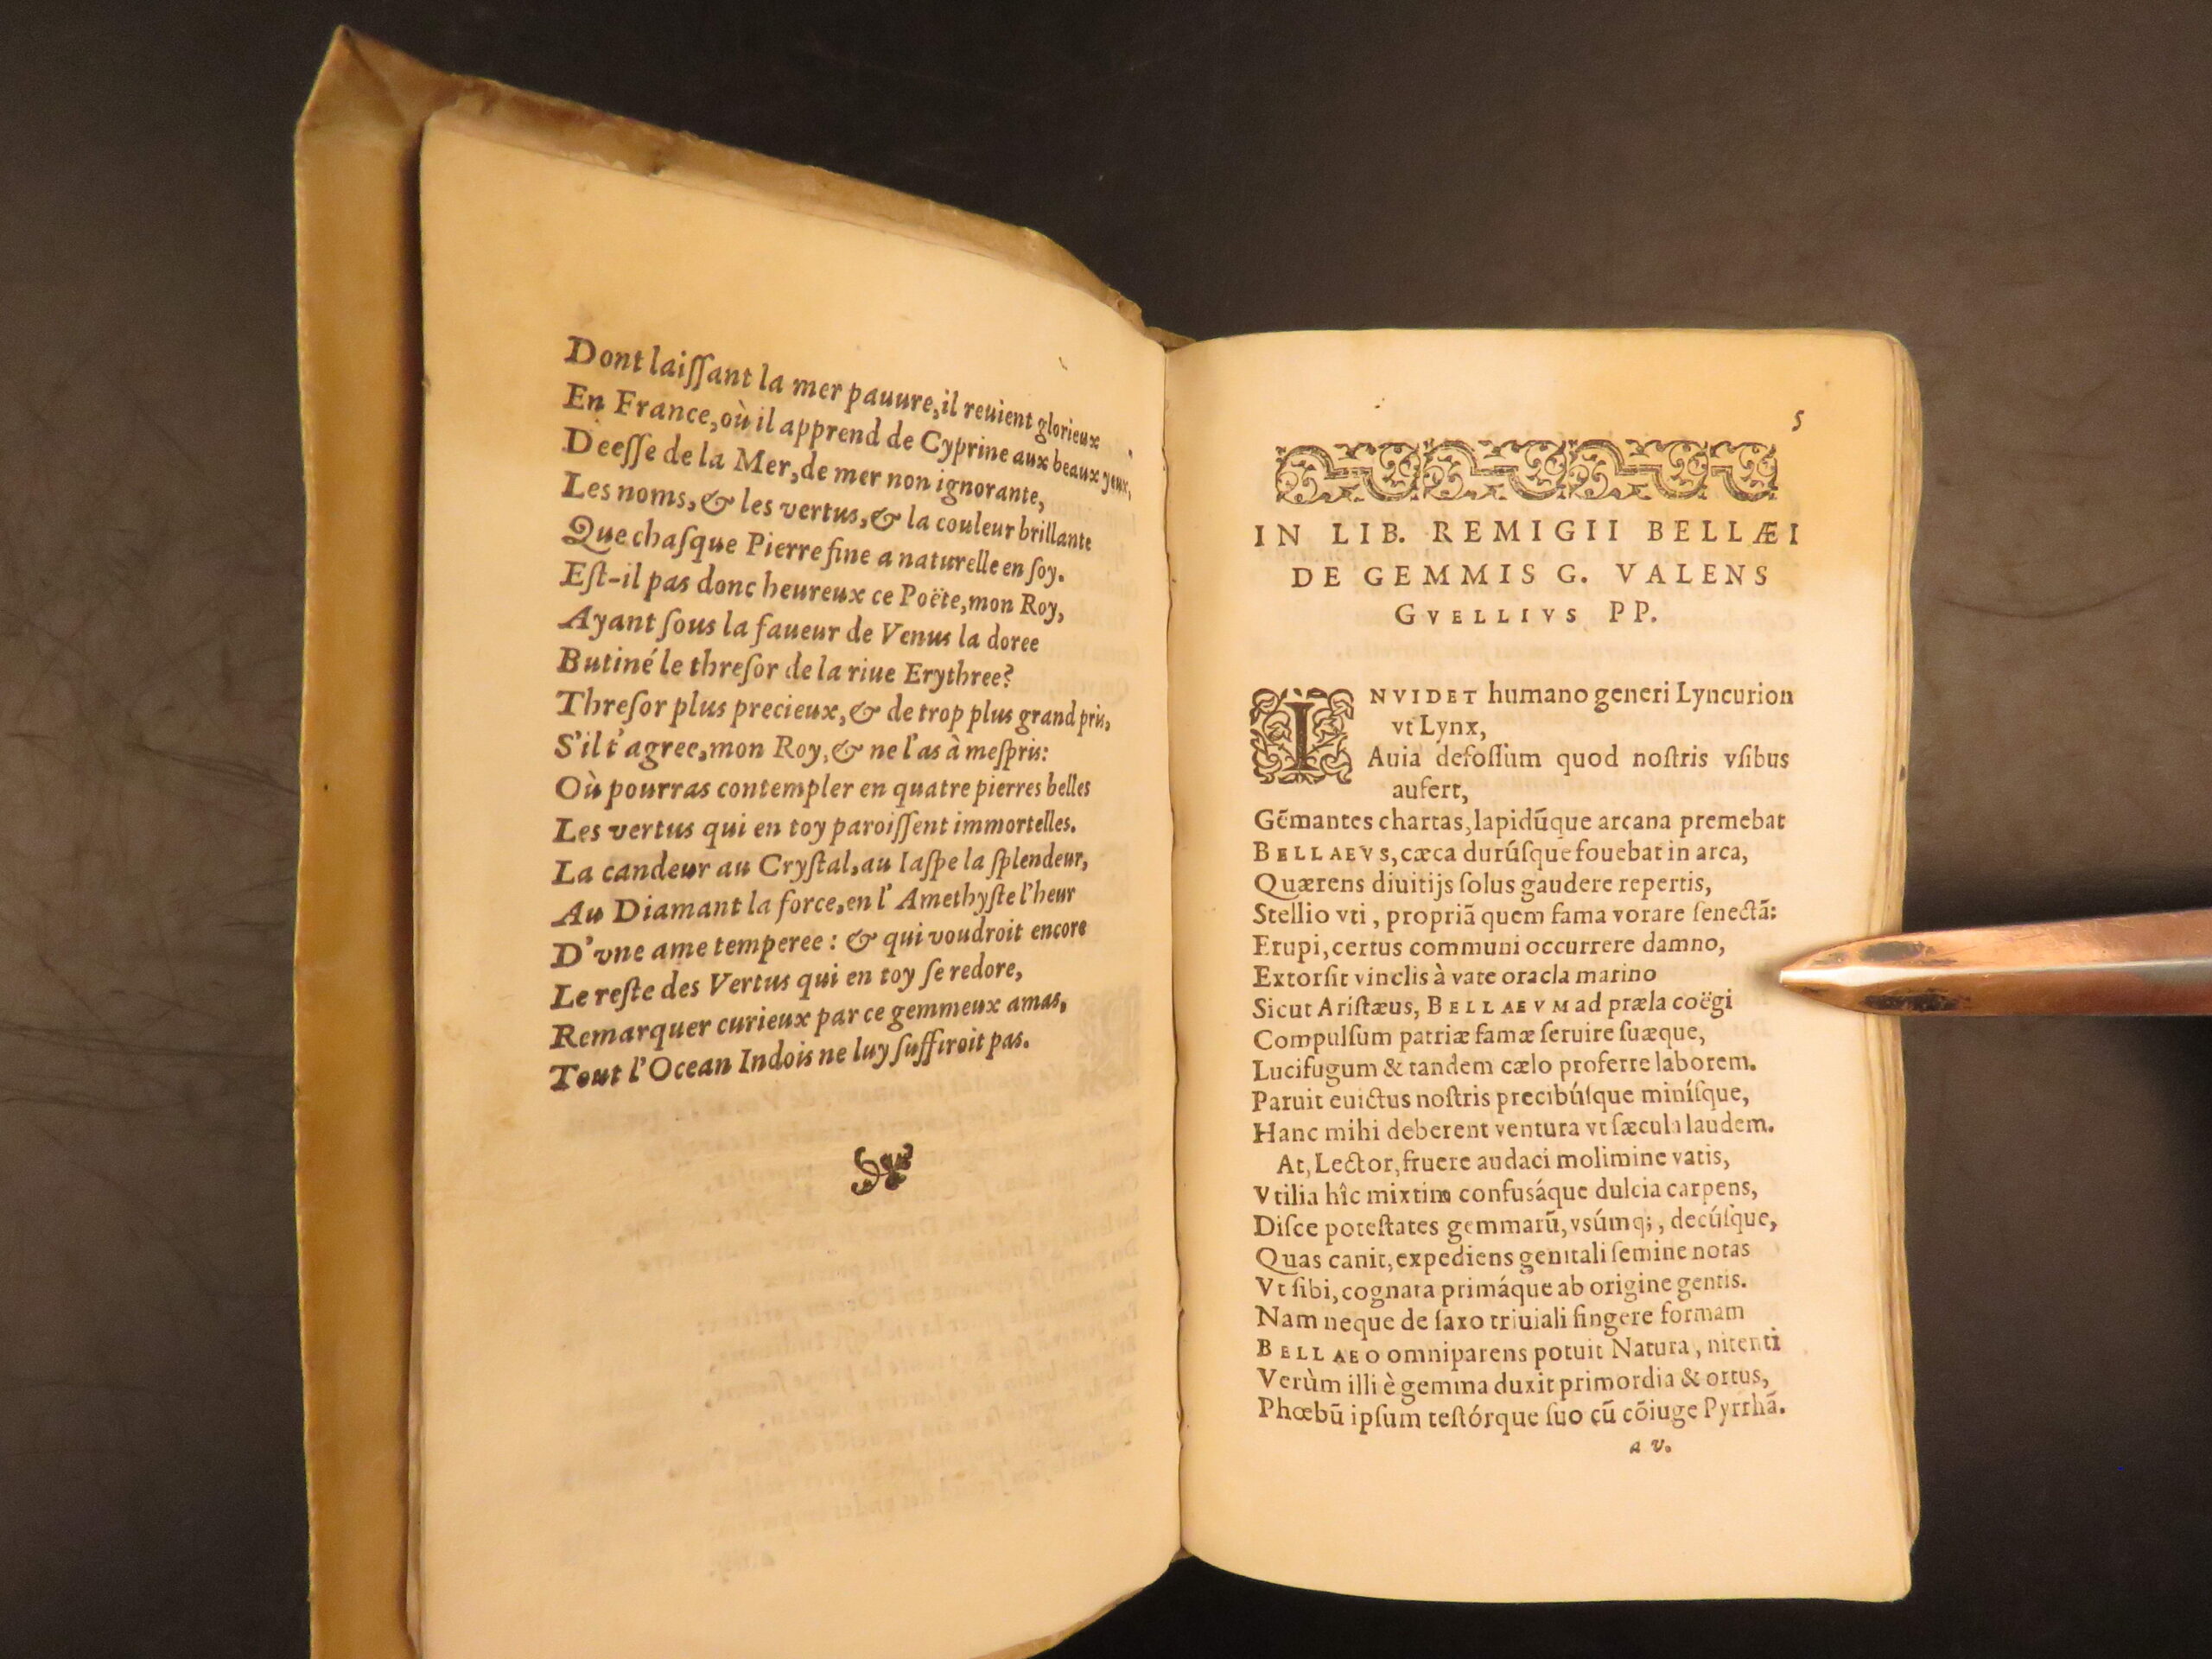 Dont laiſſant la mer pauure, il reuient glorieux
En France, où il apprend de Cyprine aux beaux yeux,
Deeſſe de la Mer, de mer non ignorante,
Les noms, & les vertus, & la couleur brillante
Que chaſque Pierre fine a naturelle en ſoy.
Eſt-il pas donc heureux ce Poëte, mon Roy,
Ayant ſous la faueur de Venus la doree
Butiné le threſor de la riue Erythree?
Threſor plus precieux, & de trop plus grand pris,
S'il t'agree, mon Roy, & ne l'as à meſpris:
Où pourras contempler en quatre pierres belles
Les vertus qui en toy paroiſſent immortelles.
La candeur au Cryſtal, au Iaſpe la ſplendeur,
Au Diamant la force, en l'Amethyſte l'heur
D'vne ame temperee: & qui voudroit encore
Le reſte des Vertus qui en toy ſe redore,
Remarquer curieux par ce gemmeux amas,
Tout l'Ocean Indois ne luy ſuffiroit pas.
5
IN LIB. REMIGII BELLÆI
DE GEMMIS G. VALENS
GVELLIVS PP.
INVIDET humano generi Lyncurion
vt Lynx,
Auia defoſſum quod noſtris vſibus
aufert,
Gẽmantes chartas, lapidũque arcana premebat
BELLAEVS, cæca durúſque fouebat in arca,
Quærens diuitijs ſolus gaudere repertis,
Stellio vti, propriã quem fama vorare ſenectã:
Erupi, certus communi occurrere damno,
Extorſit vinclis à vate oracla marino
Sicut Ariſtæus, BELLAEVM ad præla coëgi
Compulſum patriæ famæ ſeruire ſuæque,
Lucifugum & tandem cælo proferre laborem.
Paruit euictus noſtris precibúſque miníſque,
Hanc mihi deberent ventura vt ſæcula laudem.
At, Lector, fruere audaci molimine vatis,
Vtilia hîc mixtim confusáque dulcia carpens,
Diſce poteſtates gemmarũ, vsúmq;, decúſque,
Quas canit, expediens genitali ſemine notas
Vt ſibi, cognata primáque ab origine gentis.
Nam neque de ſaxo triuiali fingere formam
BELLAEO omniparens potuit Natura, nitenti
Verùm illi è gemma duxit primordia & ortus,
Phœbũ ipſum teſtórque ſuo cũ cõiuge Pyrrhã.
a v.